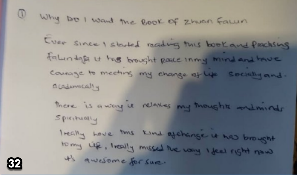 ① Why Do I want the Book of Zhuan Falun
Ever since I started reading this book and Practising
falundafa it has brought peace in my mind and have
courage to meeting my change of life socially and
academically
there is a way it relaxes my thoughts and minds
Spiritually
I really love this kind of change it has brought
to my life, I really missed the way I feel right now
it's awesome for sure.
32